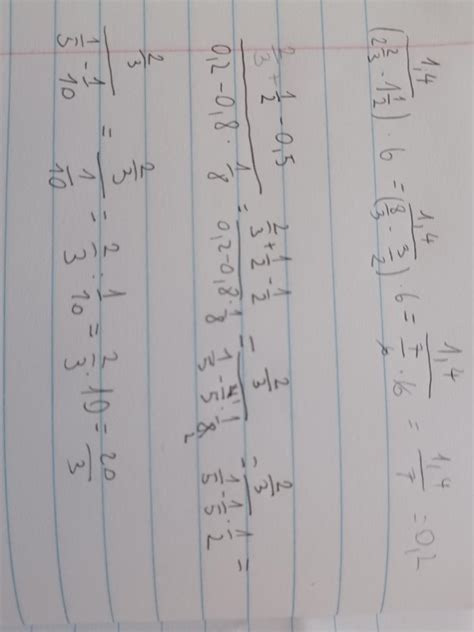 1,4/((2 2/3 - 1 1/2) · 6) = 1,4/((8/3 - 3/2) · 6) = 1,4/(7/6 · 6) = 1,4/7 = 0,2
(2/3 + 1/2 - 0,5)/(0,2 - 0,8 · 1/8) = (2/3 + 1/2 - 1/2)/(0,2 - 0,8 · 1/8) = (2/3)/(1/5 - 4/5 · 1/8 2) = (2/3)/(1/5 - 1/5 · 1/2) =
(2/3)/(1/5 - 1/10) = (2/3)/(1/10) = 2/3 : 1/10 = 2/3 · 10 = 20/3